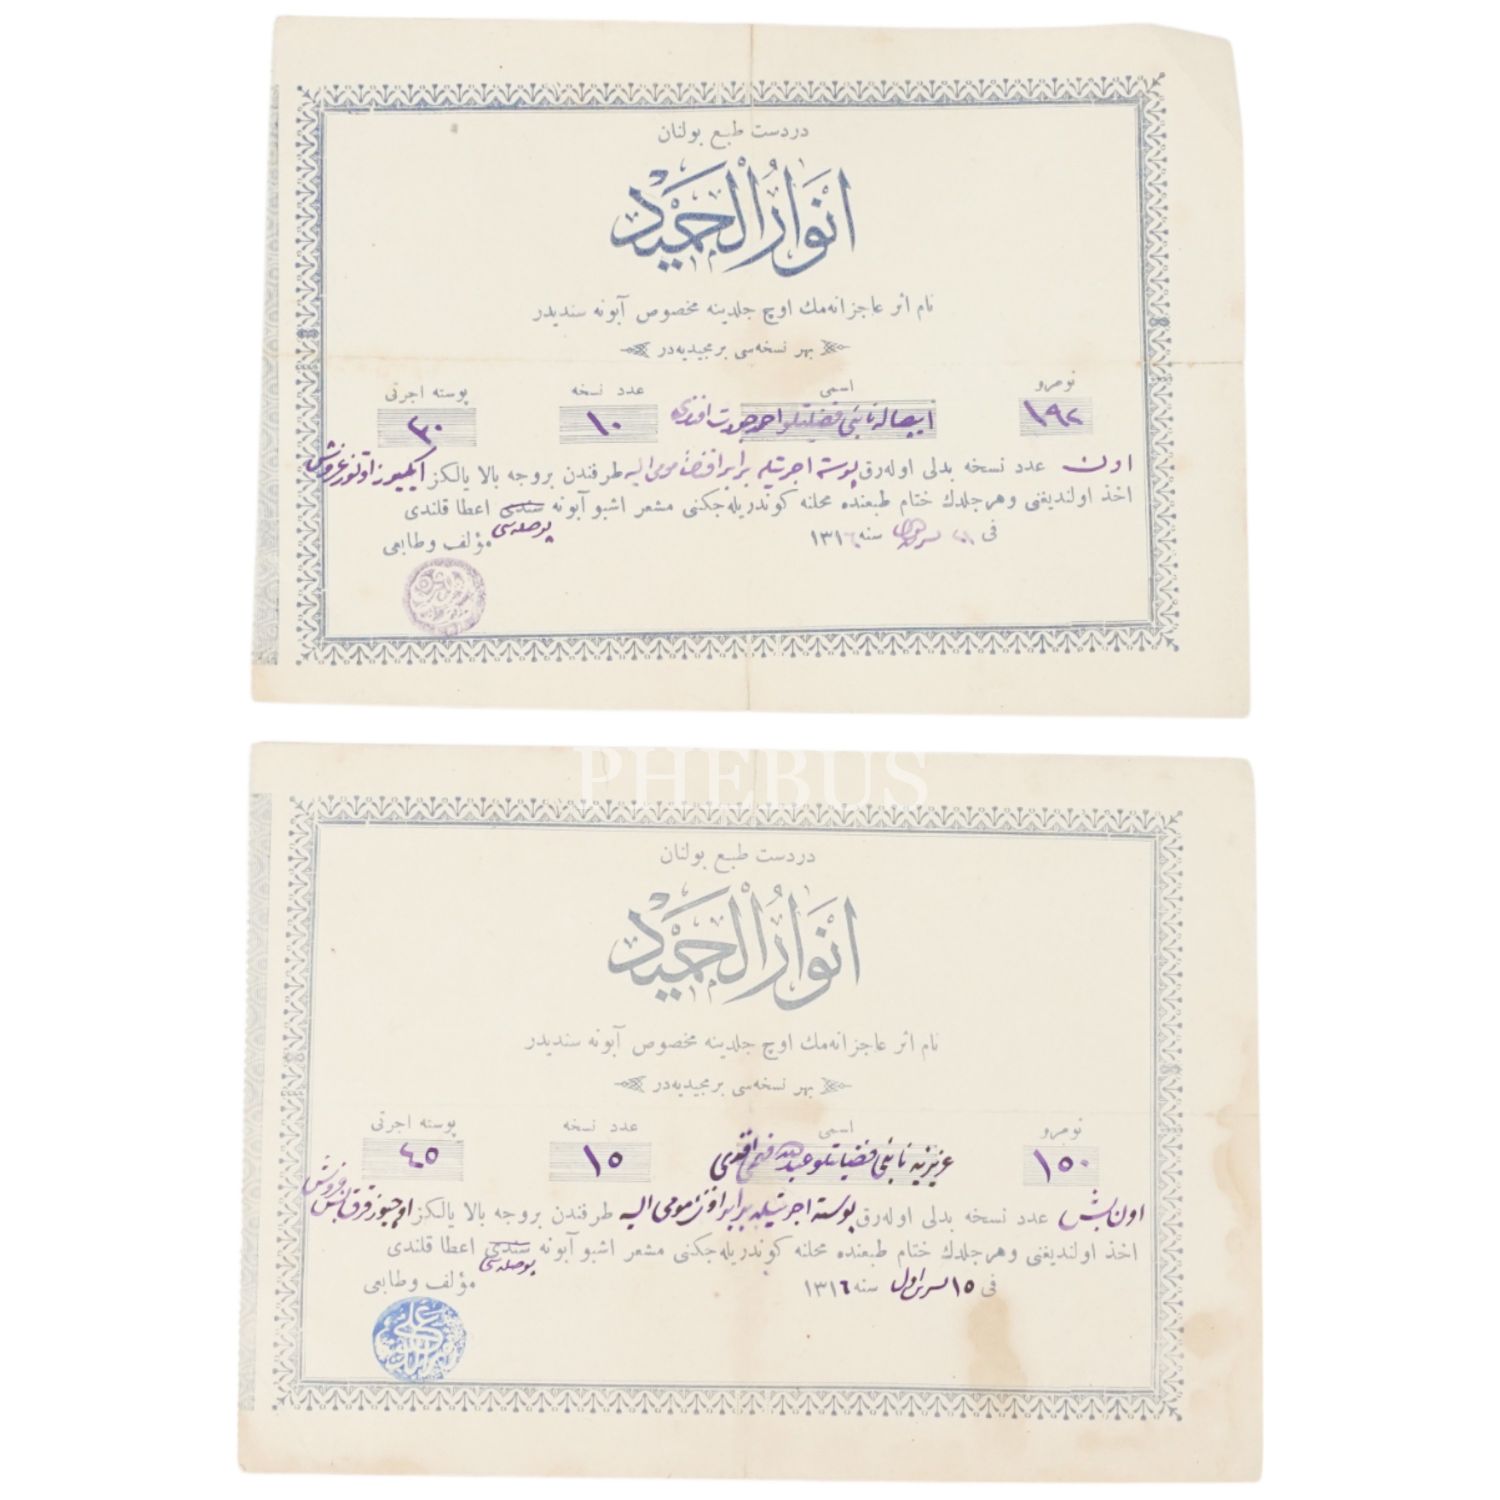 دردست طبع بولنان
انوارُ الحميد
نام اثر عاجزانه‌مك اوچ جلدينه مخصوص آبونه سنديدر
بهر نسخه‌سی بر مجيديه‌در
نومرو اسمی عدد نسخه پوسته اجرتی
١٩٢ نائبی فضيلتلو احمد جودت افندی ١٠ ٣٠
اون عدد نسخه بدلی اوله‌رق پوسته اجرتيله برابر مومی اليه طرفندن بروجه بالا يالكز ايكيوز اوتوز غروش
اخذ اولنديغنی وهر جلدك ختام طبعنده محلنه كوندريله‌جكنی مشعر اشبو آبونه سندی اعطا قلندی
پوصله‌سی
فی سنه ١٣١٦
مؤلف وطابعی
PHEBUS
دردست طبع بولنان
انوارُ الحميد
نام اثر عاجزانه‌مك اوچ جلدينه مخصوص آبونه سنديدر
بهر نسخه‌سی بر مجيديه‌در
نومرو اسمی عدد نسخه پوسته اجرتی
١٥٠ عزيزيه نائبی فضيلتلو عبدالله فهمی افندی ١٥ ٤٥
اون بش عدد نسخه بدلی اوله‌رق پوسته اجرتيله برابر مومی اليه طرفندن بروجه بالا يالكز اوچيوز قرق بش غروش
اخذ اولنديغنی وهر جلدك ختام طبعنده محلنه كوندريله‌جكنی مشعر اشبو آبونه سندی اعطا قلندی
پوصله‌سی
فی ١٥ اول سنه ١٣١٦
مؤلف وطابعی